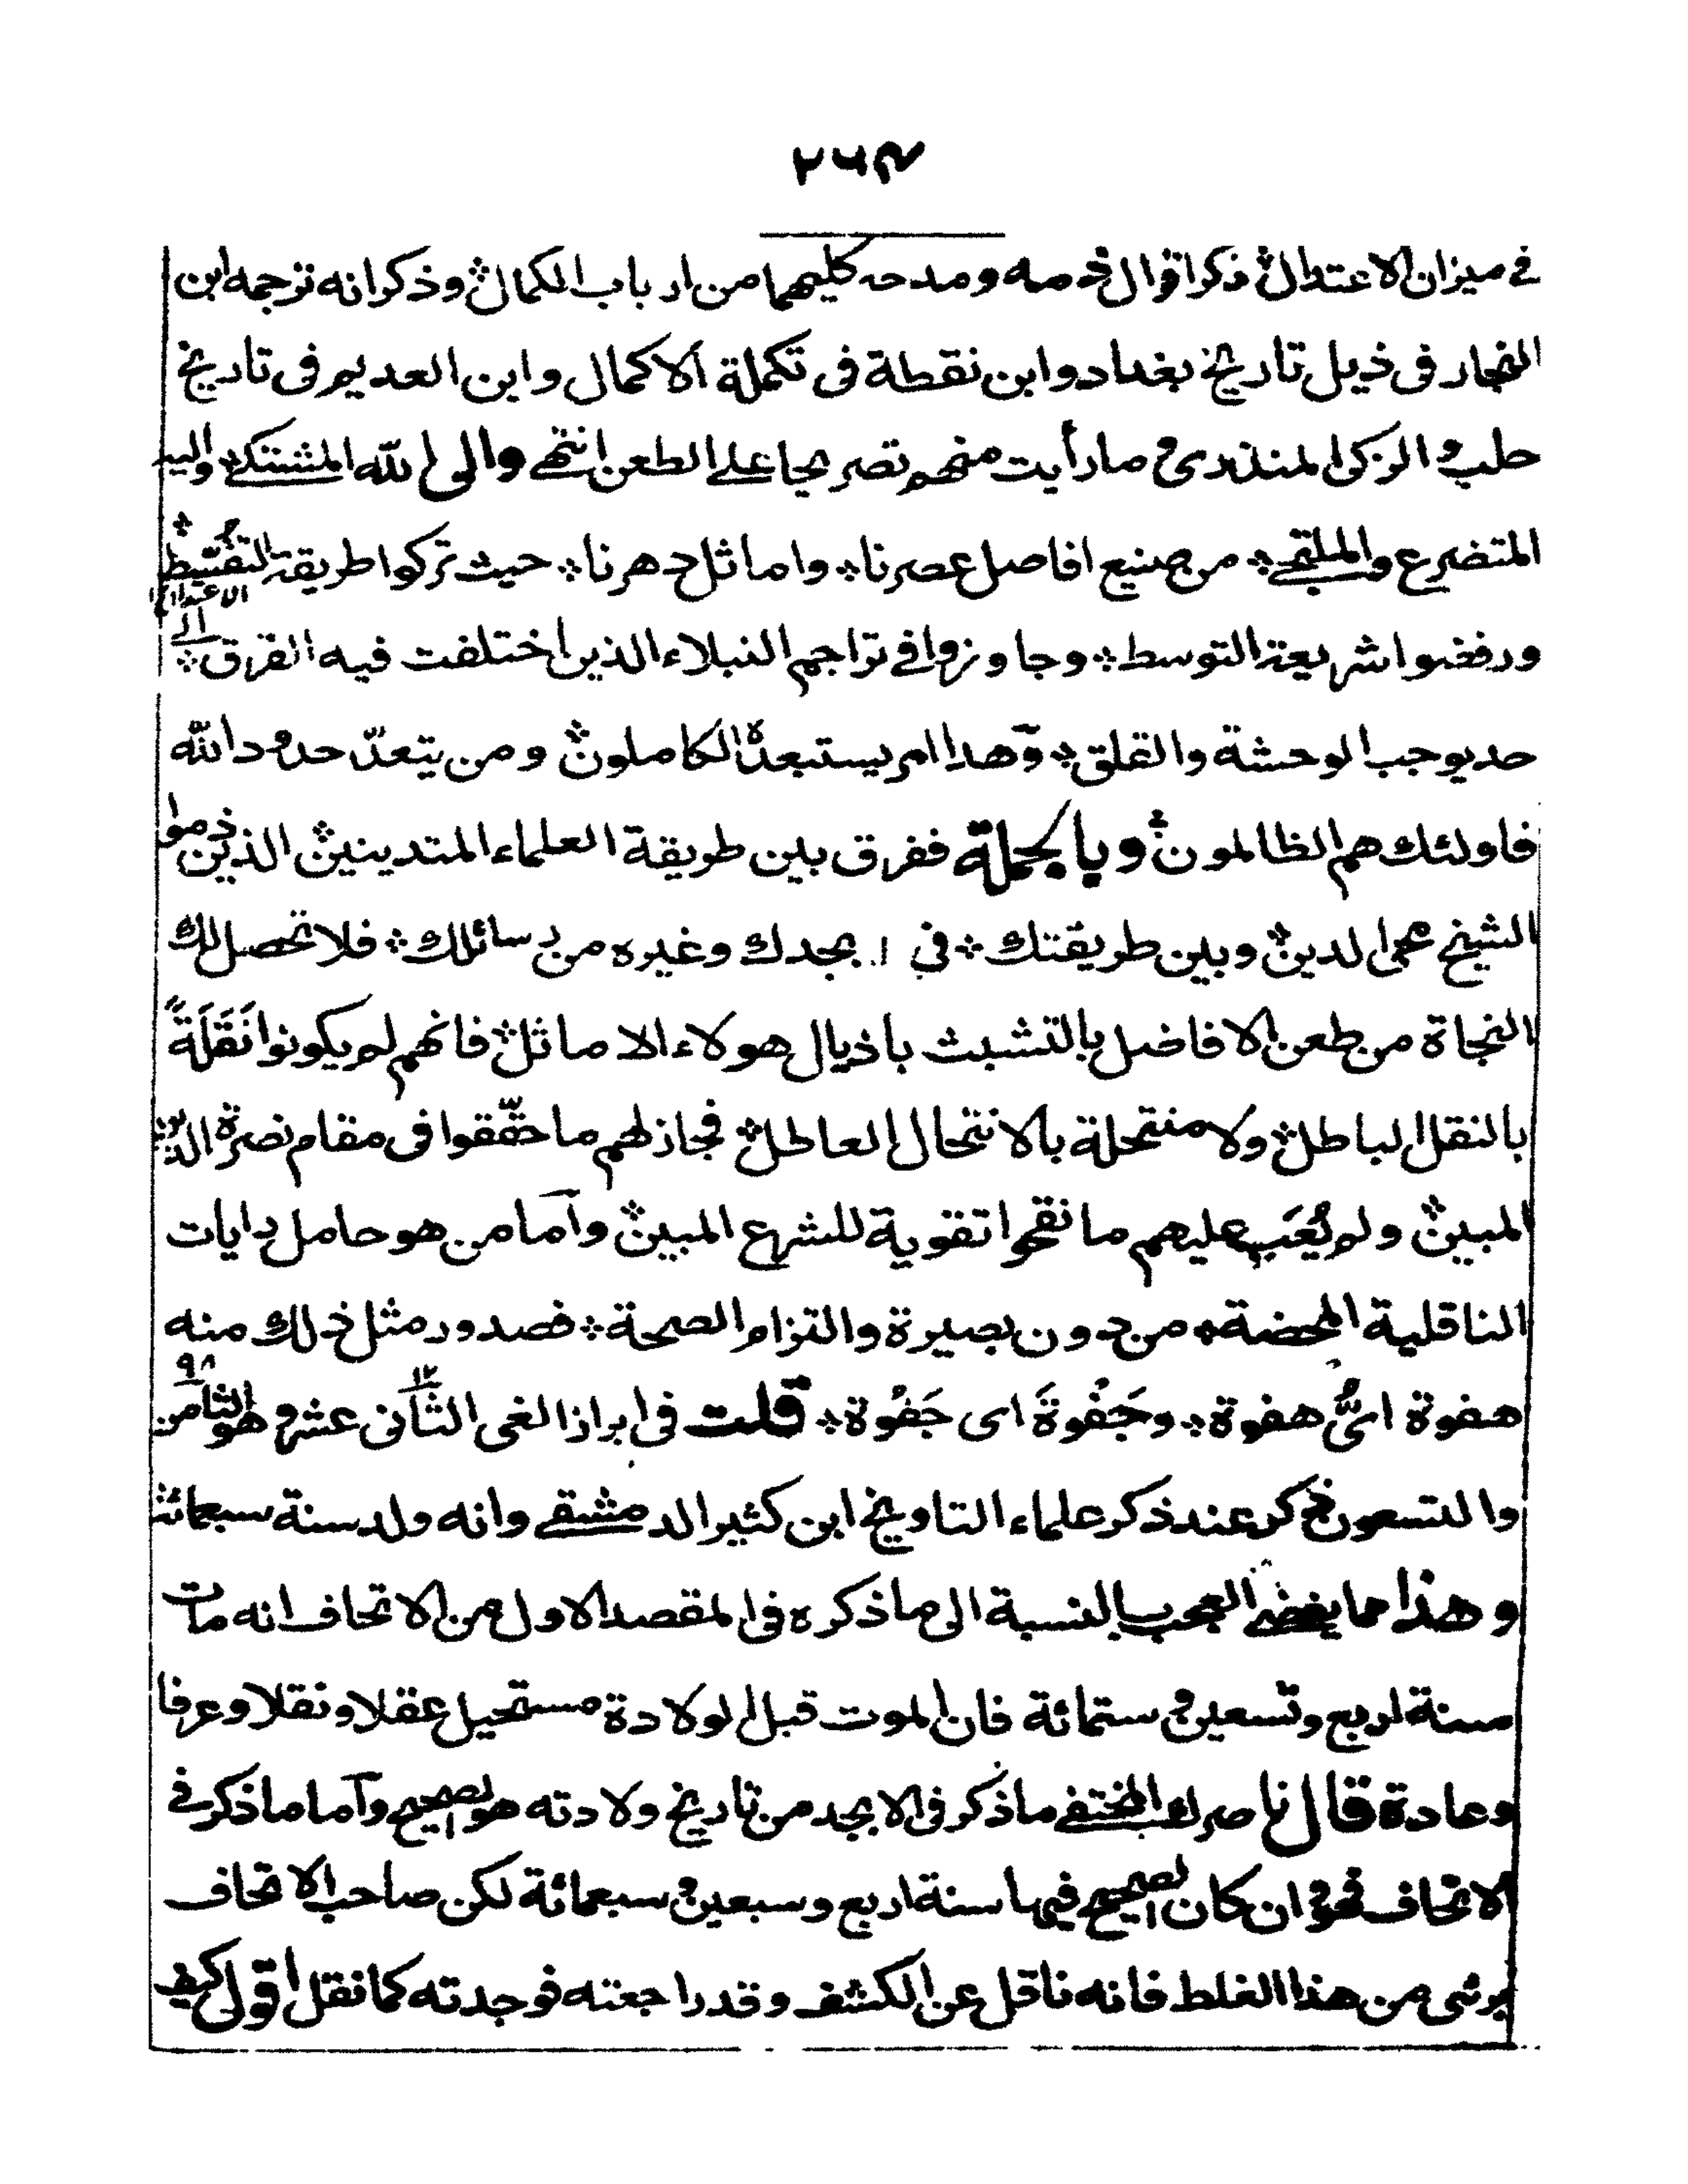 ٢٦٣
في ميزان الاعتدال ⁘ ذكر اقوال ذمه ومدحه كليهما من ارباب الكمال ⁘ وذكر انه ترجمه ابن
النجار في ذيل تاريخ بغداد وابن نقطة فى تكملة الاكمال وابن العديم فى تاريخ
حلب والزكى المنذرى وما رأيت منهم تصريحا على الطعن انتهى والى الله المشتكى واليه
المتضرع والملتجى ⁘ من صنيع افاضل عصرنا ⁘ واماثل دهرنا ⁘ حيث تركوا طريقة التفتيش ⁘
ورفضوا شريعة التوسط ⁘ وجاوزوا في تراجم النبلاء الذين اختلفت فيه الفرق ⁘ الى
حد يوجب الوحشة والقلق ⁘ وهذا امر يستبعده الكاملون ⁘ ومن يتعدّ حدود الله
فاولئك هم الظالمون ⁘ وبالجملة ففرق بين طريقة العلماء المتدينين ⁘ الذين ذموا
الشيخ محى الدين ⁘ وبين طريقتك ⁘ في ابجدك وغيره من رسائلك ⁘ فلا تحصل لك
النجاة من طعن الافاضل بالتشبث باذيال هولاء الاماثل ⁘ فانهم لم يكونوا نَقَلَةً
بالنقل الباطل ⁘ ولا منتحلة بالانتحال العاطل ⁘ فجاز لهم ما حقّقوا فى مقام نصرة الدين
المبين ⁘ ولم يُعَب عليهم ما نقحوا تقوية للشرع المبين ⁘ وآما من هو حامل رايات
الناقلية المحضة ⁘ من دون بصيرة والتزام الصحة ⁘ فصدور مثل ذلك منه
هفوة اىُّ هفوة ⁘ وجَفْوة اى جَفْوة ⁘ قلت فى ابراز الغى الثانى ١٢ عشر وهو الثامن ٩٨
والتسعون ذكر عند ذكر علماء التاريخ ابن كثير الدمشقى وانه ولد سنة سبعمائة
وهذا مما يفضى العجب بالنسبة الى ما ذكره فى المقصد الاول من الاتحاف انه مات
سنة اربع وتسعين وستمائة فان الموت قبل الولادة مستحيل عقلا ونقلا وعرفا
وعادة قال ناصرك المختفى ما ذكر فى الابجد من تاريخ ولادته هو الصحيح وآما ما ذكر في
الاتحاف فهو وان كان الصحيح فيها سنة اربع وسبعين وسبعمائة لكن صاحب الاتحاف
برئى من هذا الغلط فانه ناقل عن الكشف وقد راجعته فوجدته كما نقل اقول كيف